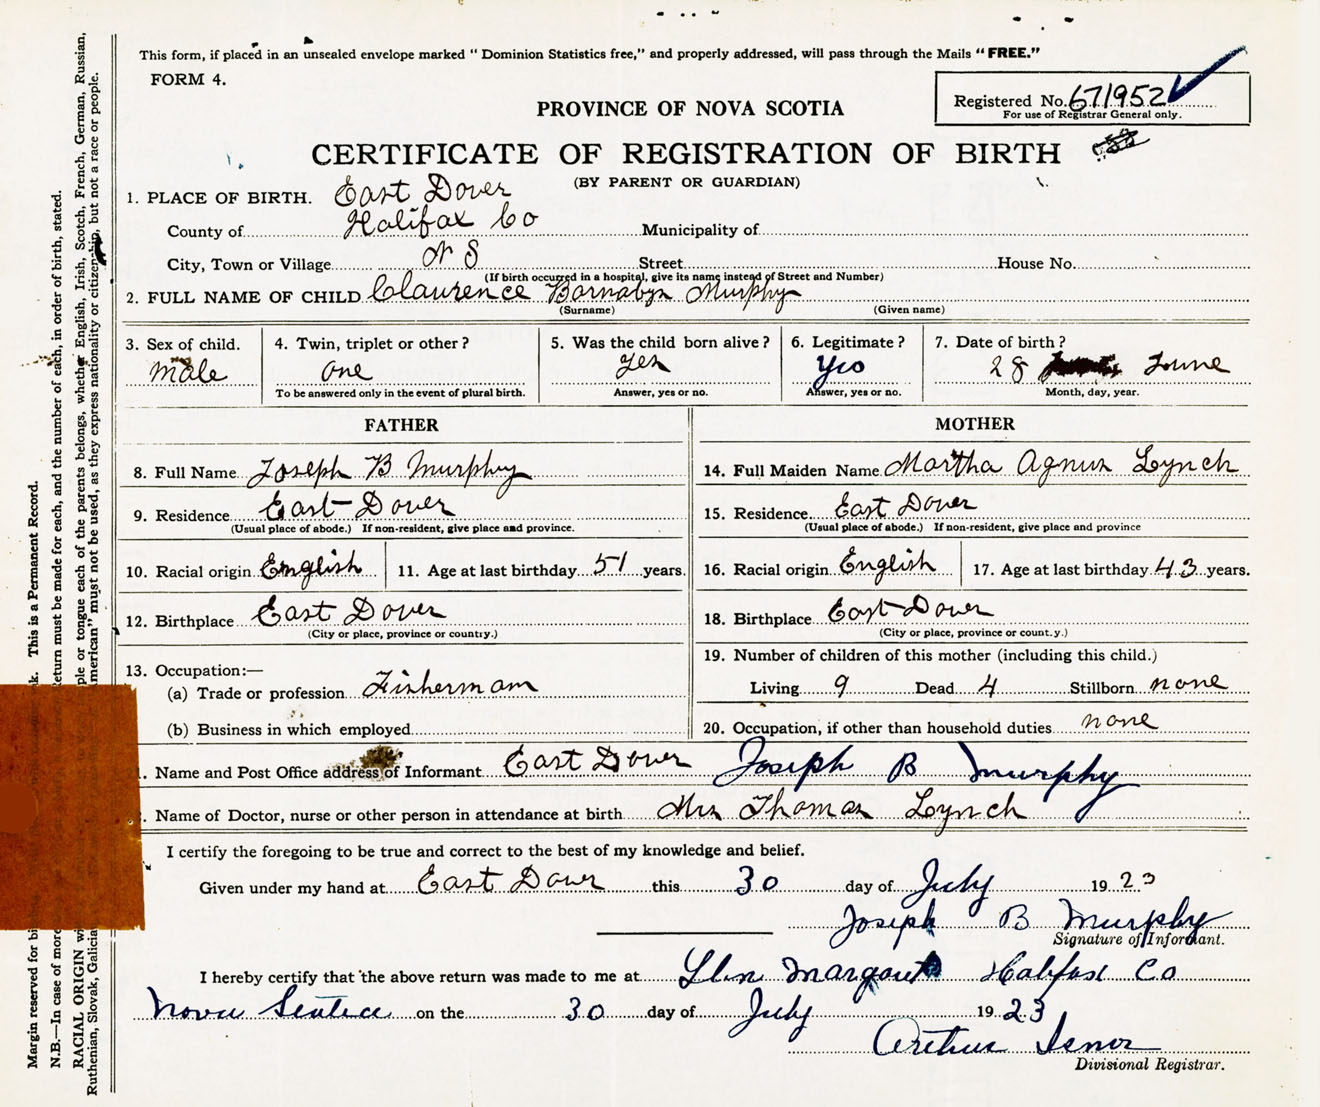 This form, if placed in an unsealed envelope marked "Dominion Statistics free," and properly addressed, will pass through the Mails "FREE."
FORM 4.
Registered No. 671952
For use of Registrar General only.
PROVINCE OF NOVA SCOTIA
CERTIFICATE OF REGISTRATION OF BIRTH
(BY PARENT OR GUARDIAN)
1. PLACE OF BIRTH. East Dover
County of Halifax Co Municipality of
City, Town or Village N S Street House No.
(If birth occurred in a hospital, give its name instead of Street and Number)
2. FULL NAME OF CHILD Claurence Barnabyn Murphy
(Surname) (Given name)
3. Sex of child. 4. Twin, triplet or other? 5. Was the child born alive? 6. Legitimate? 7. Date of birth?
Male one yes Yes 28 June
To be answered only in the event of plural birth. Answer, yes or no. Answer, yes or no. Month, day, year.
FATHER MOTHER
8. Full Name Joseph B Murphy 14. Full Maiden Name Martha Agnus Lynch
9. Residence East Dover 15. Residence East Dover
(Usual place of abode.) If non-resident, give place and province. (Usual place of abode.) If non-resident, give place and province
10. Racial origin English 11. Age at last birthday 51 years. 16. Racial origin English 17. Age at last birthday 43 years.
12. Birthplace East Dover 18. Birthplace East Dover
(City or place, province or country.) (City or place, province or count.y.)
13. Occupation:— 19. Number of children of this mother (including this child.)
(a) Trade or profession Fisherman Living 9 Dead 4 Stillborn none
(b) Business in which employed 20. Occupation, if other than household duties none
Name and Post Office address of Informant East Dover Joseph B Murphy
Name of Doctor, nurse or other person in attendance at birth Mrs Thomas Lynch
I certify the foregoing to be true and correct to the best of my knowledge and belief.
Given under my hand at East Dover this 30 day of July 1923
Joseph B Murphy
Signature of Informant.
I hereby certify that the above return was made to me at Margaret Halifax Co
Nova Scotia on the 30 day of July 1923
Arthur Isnor
Divisional Registrar.
Margin reserved for This is a Permanent Record.
N.B.—In case of more return must be made for each, and the number of each, in order of birth, stated.
RACIAL ORIGIN or tongue each of the parents belongs, whether English, Irish, Scotch, French, German, Russian,
Ruthenian, Slovak, Galicia American" must not be used, as they express nationality or citizenship, but not a race or people.